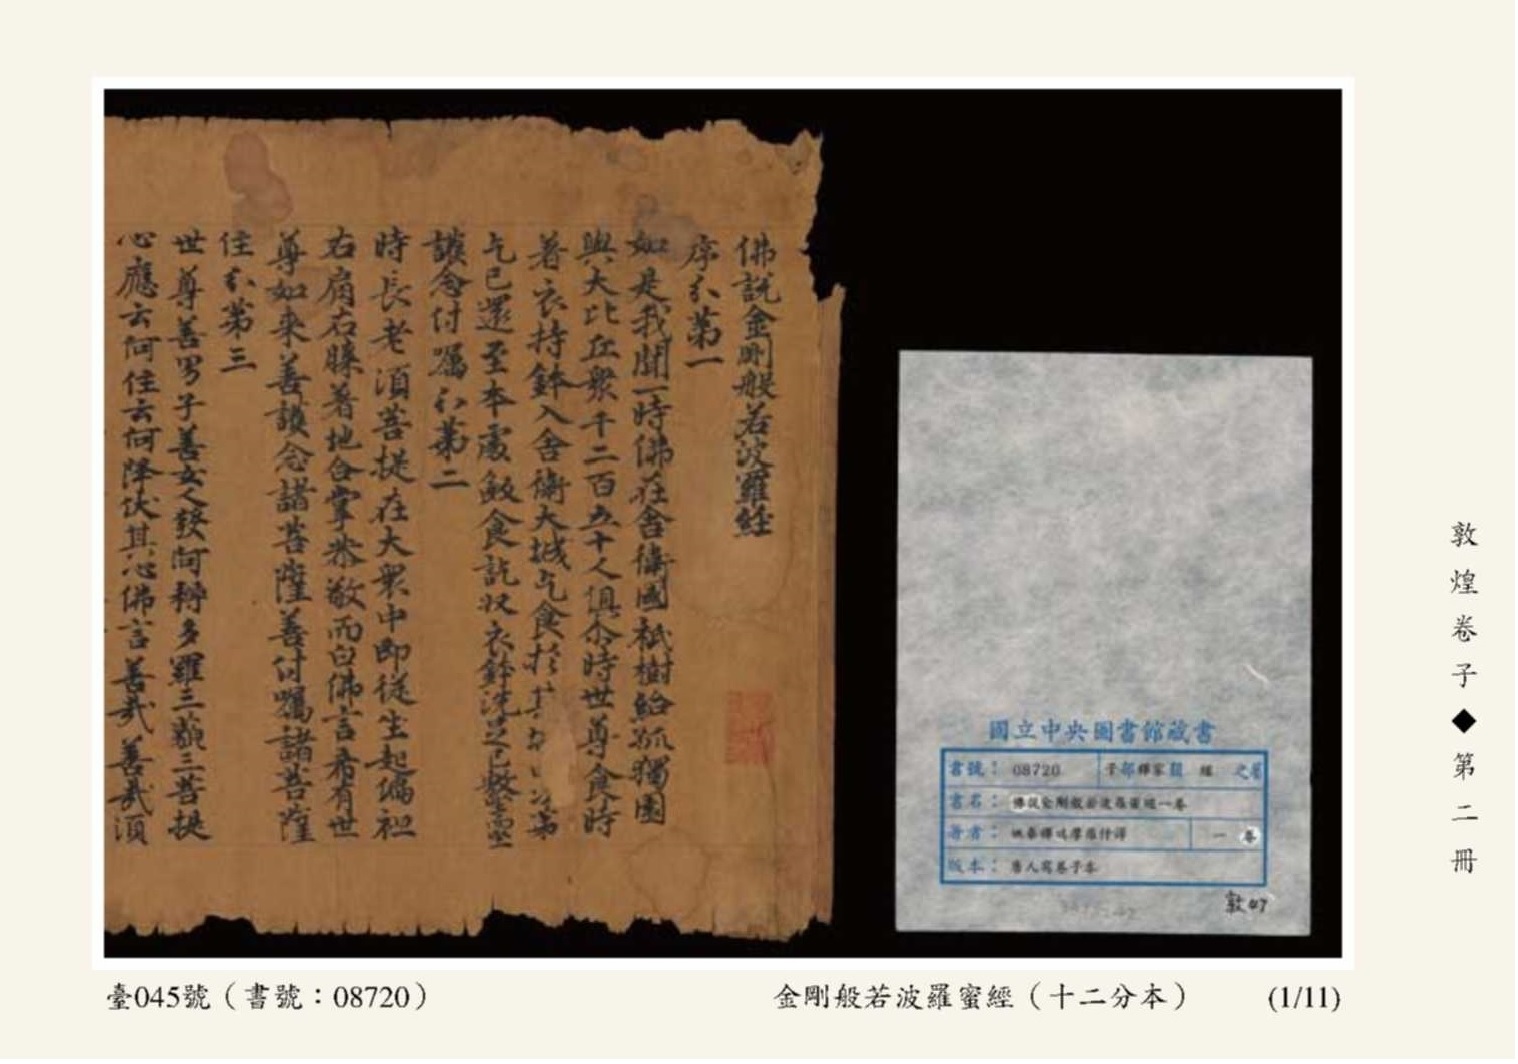 佛說金剛般若波羅經
序分第一
如是我聞一時佛在舍衛國祇樹給孤獨園
與大比丘衆千二百五十人俱尒時世尊食時
著衣持鉢入舍衛大城乞食於其 次第
乞已還至本處飯食訖收衣鉢洗足已敷坐
護念付囑分第二
時長老湏菩提在大衆中即從坐起偏袒
右肩右膝著地合掌恭敬而白佛言希有世
尊如来善護念諸菩薩善付囑諸菩薩
住分第三
世尊善男子善女人發阿耨多羅三藐三菩提
心應云何住云何降伏其心佛言善哉善哉湏
國立中央圖書館藏書
書號：08720 子部釋家類 經 之屬
書名：佛說金剛般若波羅蜜經一卷
著者：姚秦釋鳩摩羅什譯 一卷
版本：唐人寫卷子本
敦47
敦煌卷子◆第二冊
臺045號（書號：08720） 金剛般若波羅蜜經（十二分本） (1/11)